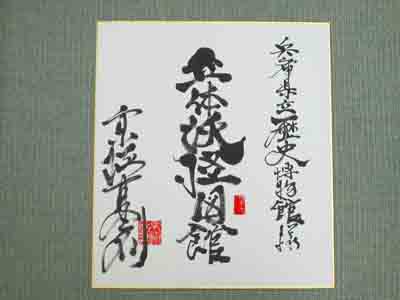 兵庫県立歴史博物館様
立体妖怪図館
京極夏彦